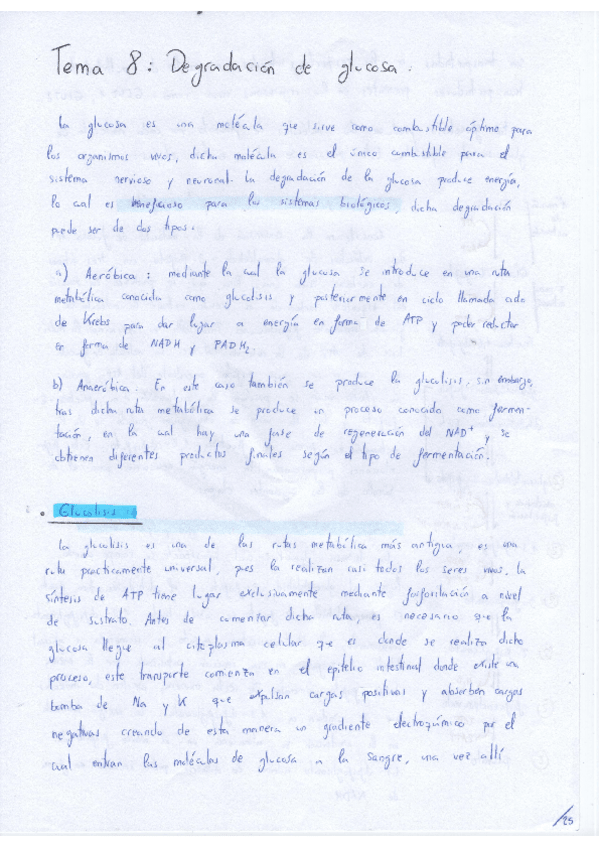 Tema 8: Degradación de glucosa.
La glucosa es una molécula que sirve como combustible óptimo para
los organismos vivos, dicha molécula es el único combustible para el
sistema nervioso y neuronal. La degradación de la glucosa produce energía,
lo cual es beneficioso para los sistemas biológicos, dicha degradación
puede ser de dos tipos.
a) Aeróbica: mediante la cual la glucosa se introduce en una ruta
metabólica conocida como glucolisis y posteriormente en ciclo llamada ciclo
de Krebs para dar lugar a energía en forma de ATP y poder reductor
en forma de NADH y FADH₂.
b) Anaeróbica. En este caso también se produce la glucolisis, sin embargo,
tras dicha ruta metabólica se produce un proceso conocido como fermen-
tación, en la cual hay una fase de regeneración del NAD⁺ y se
obtienen diferentes productos finales según el tipo de fermentación.
• Glucolisis
La glucolisis es una de las rutas metabólica más antigua, es una
ruta practicamente universal, pues la realizan casi todos los seres vivos. La
síntesis de ATP tiene lugar exclusivamente mediante fosforilación a nivel
de sustrato. Antes de comenzar dicha ruta, es necesario que la
glucosa llegue al citoplasma celular que es donde se realiza dicho
proceso, este transporte comienza en el epitelio intestinal donde existe una
bomba de Na y K que expulsan cargas positivas y absorben cargas
negativas creando de esta manera un gradiente electroquímico por el
cual entran las moléculas de glucosa a la sangre, una vez allí
/25